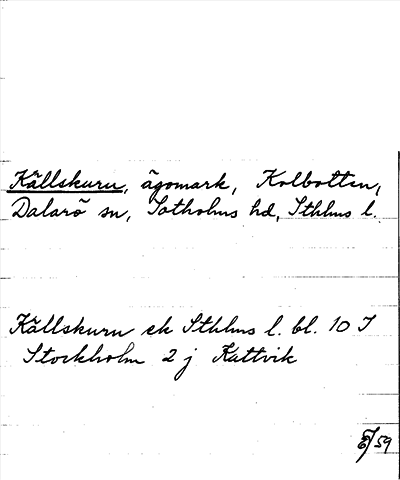 Källskuru, ägomark, Kolbotten,
Dalarö sn, Sotholms hd, Sthlms l.
Källskuru ek Sthlms l. bl. 10 I
Stockholm 2 j Kattvik
/59